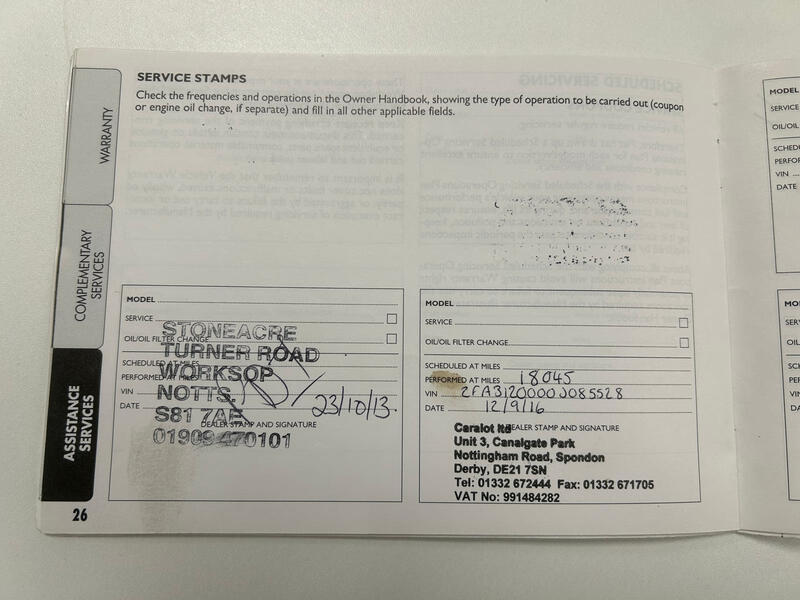 SERVICE STAMPS
Check the frequencies and operations in the Owner Handbook, showing the type of operation to be carried out (coupon
or engine oil change, if separate) and fill in all other applicable fields.
WARRANTY
COMPLEMENTARY
SERVICES
ASSISTANCE
SERVICES
MODEL
SERVICE
OIL/OIL FILTER CHANGE
SCHEDULED AT MILES
PERFORMED AT MILES
VIN
DATE 23/10/13
DEALER STAMP AND SIGNATURE
STONEACRE
TURNER ROAD
WORKSOP
NOTTS.
S81 7AE
01909 470101
MODEL
SERVICE
OIL/OIL FILTER CHANGE
SCHEDULED AT MILES
PERFORMED AT MILES 18045
VIN ZFA3120000J085528
DATE 12/9/16
DEALER STAMP AND SIGNATURE
Caralot ltd
Unit 3, Canalgate Park
Nottingham Road, Spondon
Derby, DE21 7SN
Tel: 01332 672444 Fax: 01332 671705
VAT No: 991484282
26
MODEL
SERVICE
OIL/OIL
VIN
DATE